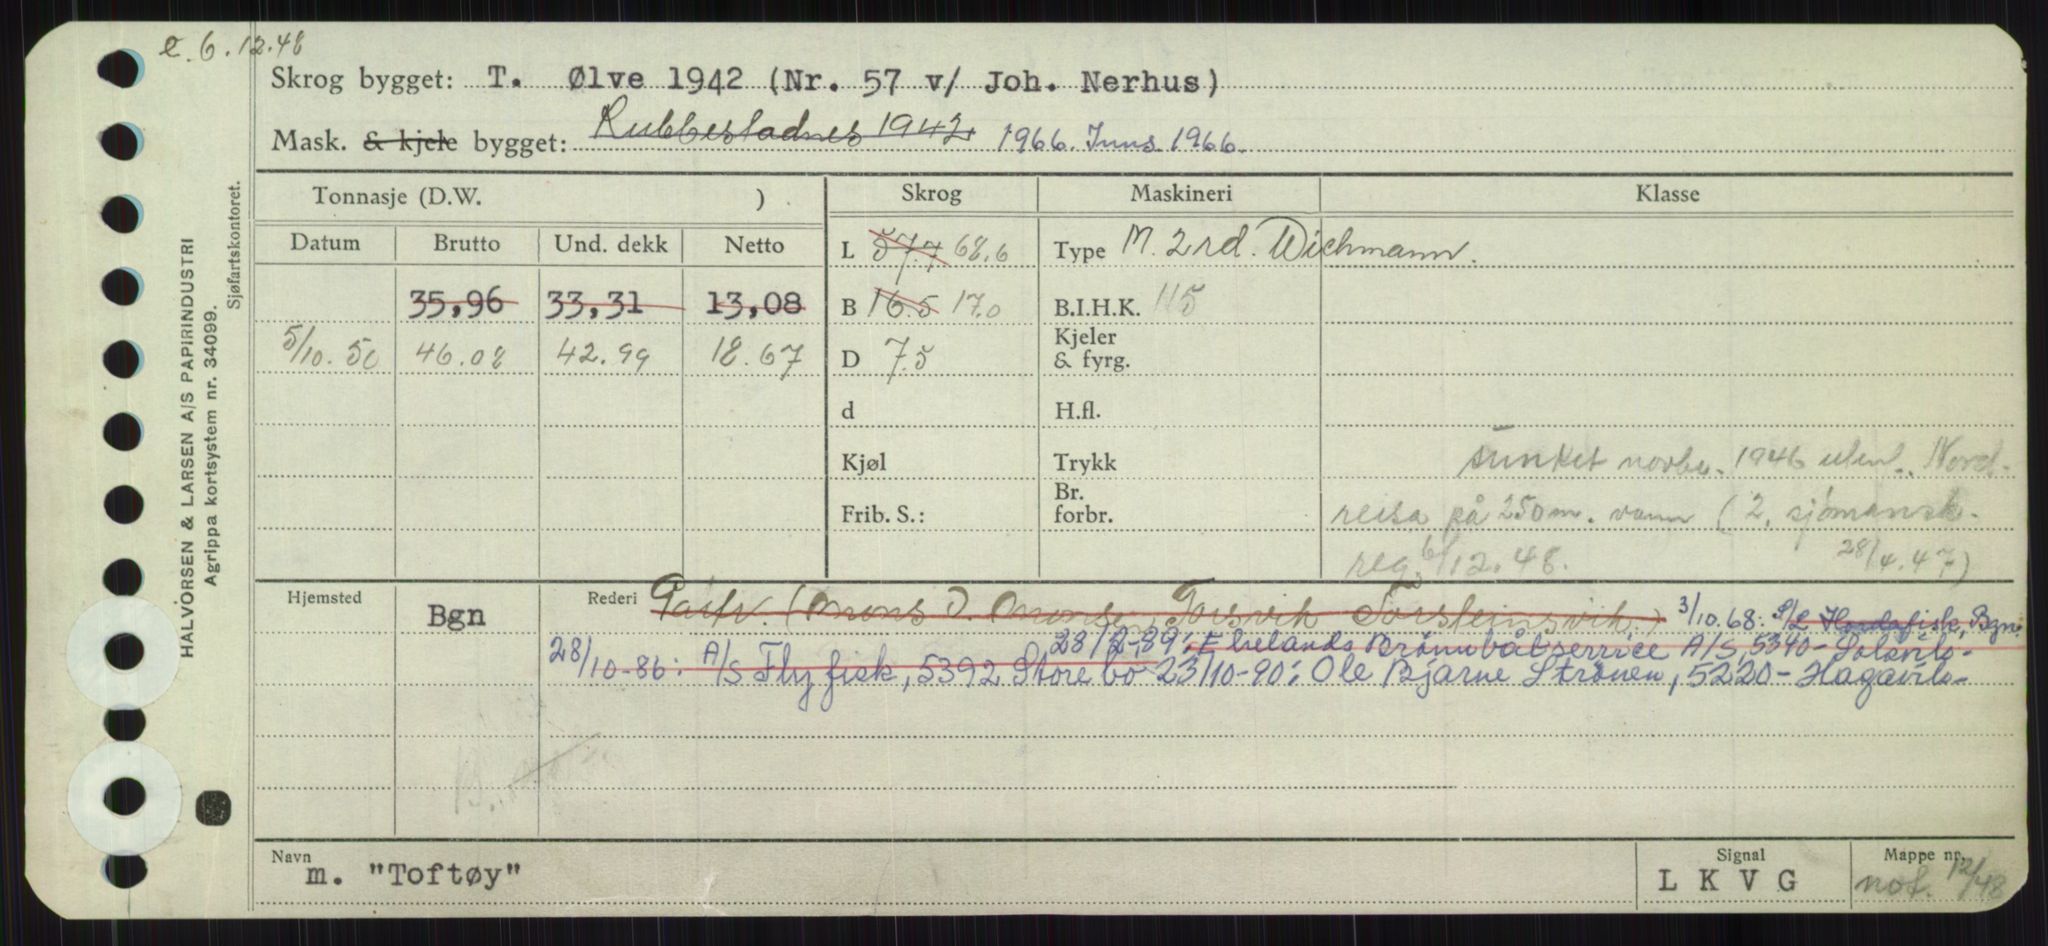 e. 6.12.48
Skrog bygget: T. Ølve 1942 (Nr. 57 v/ Joh. Nerhus)
Mask. & kjele bygget: Rubbestadnes 1942. 1966. Juns. 1966.
Tonnasje (D.W. )
Skrog
Maskineri
Klasse
Datum
Brutto
Und. dekk
Netto
L 57.7 68.6
Type M. 2 rd. Wichmann.
35,96
33,31
13,08
B 16.5 17.0
B.I.H.K. 115
5/10.50
46.08
42.99
18.67
D 7.5
Kjeler
& fyrg.
d
H.fl.
Kjøl
Trykk
sunket novbr. 1946 utenf. Nord-
Frib. S.:
Br.
forbr.
reisa på 250 m. vann (2. sjømansk.
reg. 6/12.48. 28/4.47)
Hjemsted
Bgn
Rederi
Partr. (Mons J. Monsen, Torsvik Torsteinsvik.) 3/10.68: P/L Hordafisk, Bgn.
28/12-89: Erelands Brønnbåtservice A/S, 5340-
28/10-86: A/S Flyfisk, 5392 Storebø 23/10-90: Ole Bjarne Strønen, 5220- Hagavik-
Navn
m. "Toftøy"
Signal
L K V G
Mappe nr.
not. 12/48
HALVORSEN & LARSEN A/S PAPIRINDUSTRI
Agrippa kortsystem nr. 34099.
Sjøfartskontoret.